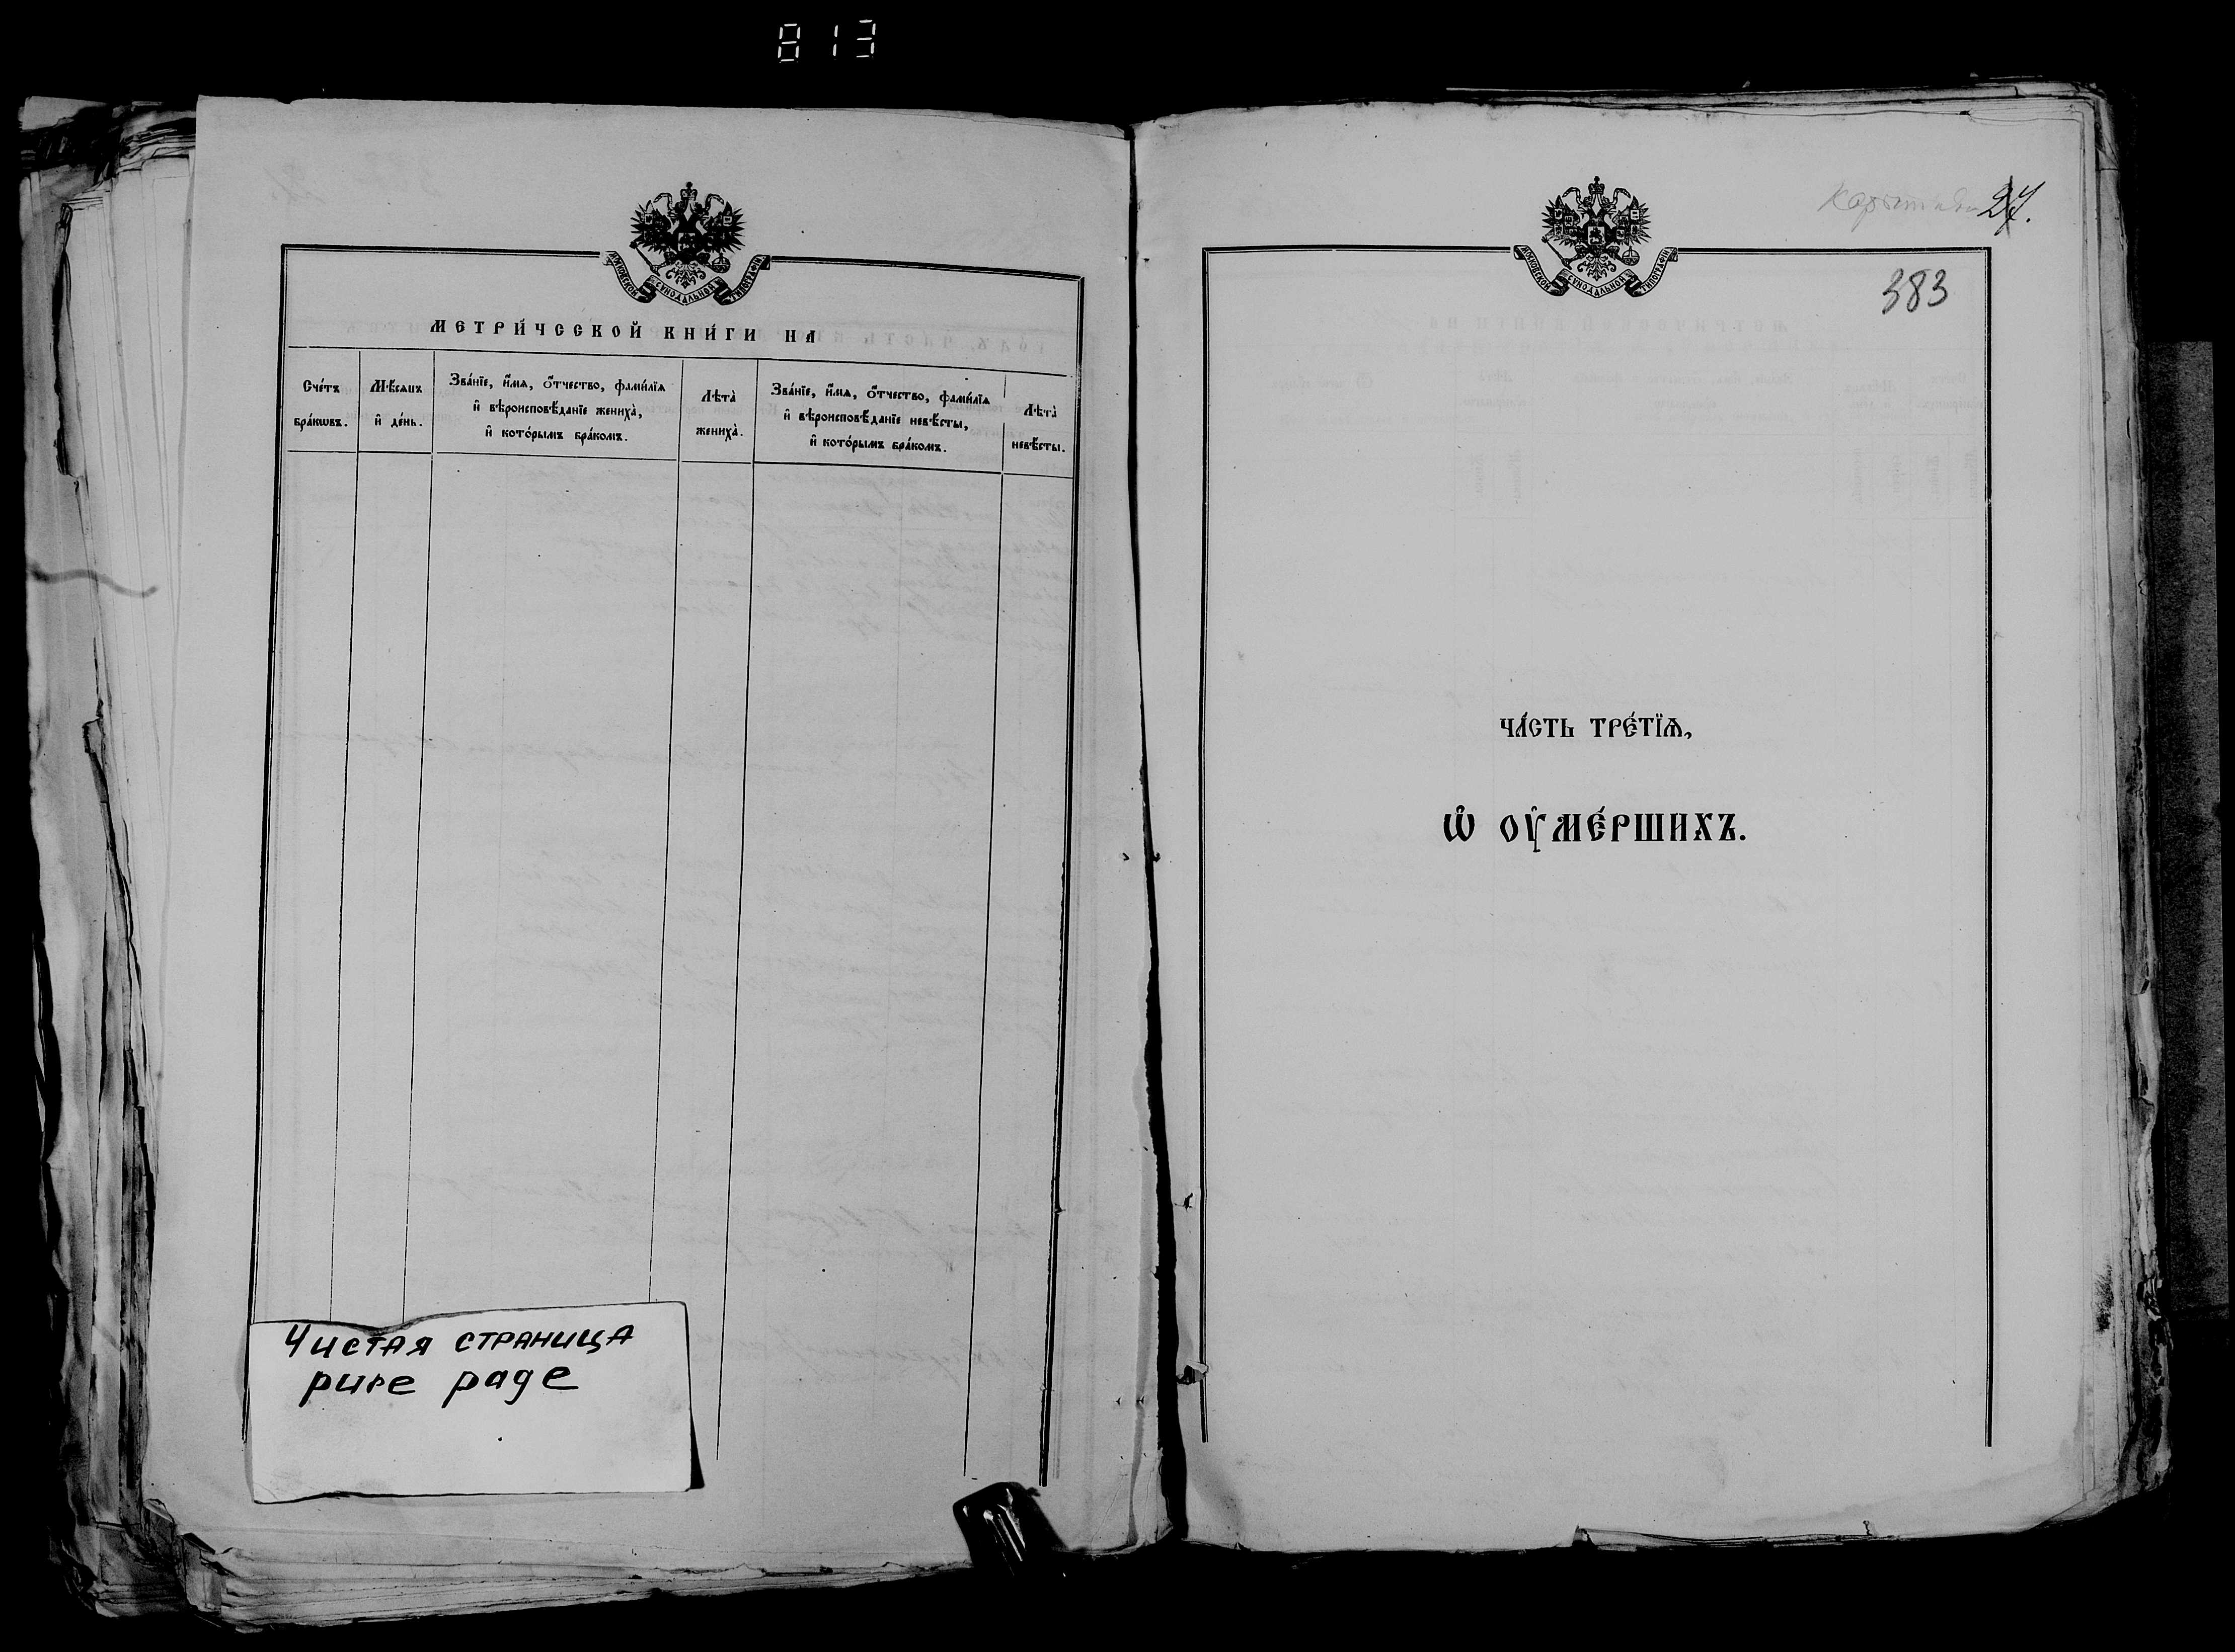 813
МОСКОВСКОЙ СѴНОДАЛЬНОЙ ТИПОГРАФІИ
МЕТРИ́ЧЕСКОЙ КНИ́ГИ НА
Сче́тъ бра́кѡвъ.
Мѣ́сѧцъ и҆ де́нь.
Зва́нїе, и҆́мѧ, ѻ҆́тчество, фами́лїѧ
и҆ вѣроисповѣ́данїе жениха̀,
и҆ кото́рымъ бра́комъ.
Лѣта̀ жениха̀.
Зва́нїе, и҆́мѧ, ѻ҆́тчество, фами́лїѧ
и҆ вѣроисповѣ́данїе невѣ́сты,
и҆ кото́рымъ бра́комъ.
Лѣта̀ невѣ́сты.
Чистая страница
pure page
27.
МОСКОВСКОЙ СѴНОДАЛЬНОЙ ТИПОГРАФІИ
383
ЧА́СТЬ ТРЕ́ТЇѦ,
Ѡ҆ ОУ҆МЕ́РШИХЪ.